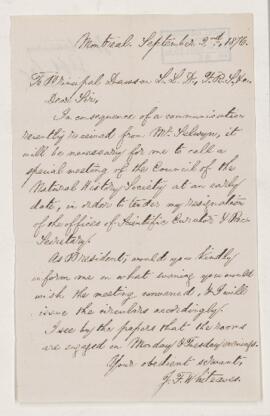 Montreal. September 2nd, 1876.
To Principal Dawson L.L.D., F.R.S. &c.
Dear Sir,
In consequence of a communication
recently received from Mr. Selwyn, it
will be necessary for me to call a
special meeting of the Council of the
Natural History Society at an early
date, in order to tender my resignation
of the offices of Scientific Curator & Rec.
Secretary.
As President, would you kindly
inform me on what evening you would
wish the meeting convened, & I will
issue the circulars accordingly.
I see by the papers that the rooms
are engaged on Monday & Tuesday evenings.
Your obedient servant,
J. F. Whiteaves.